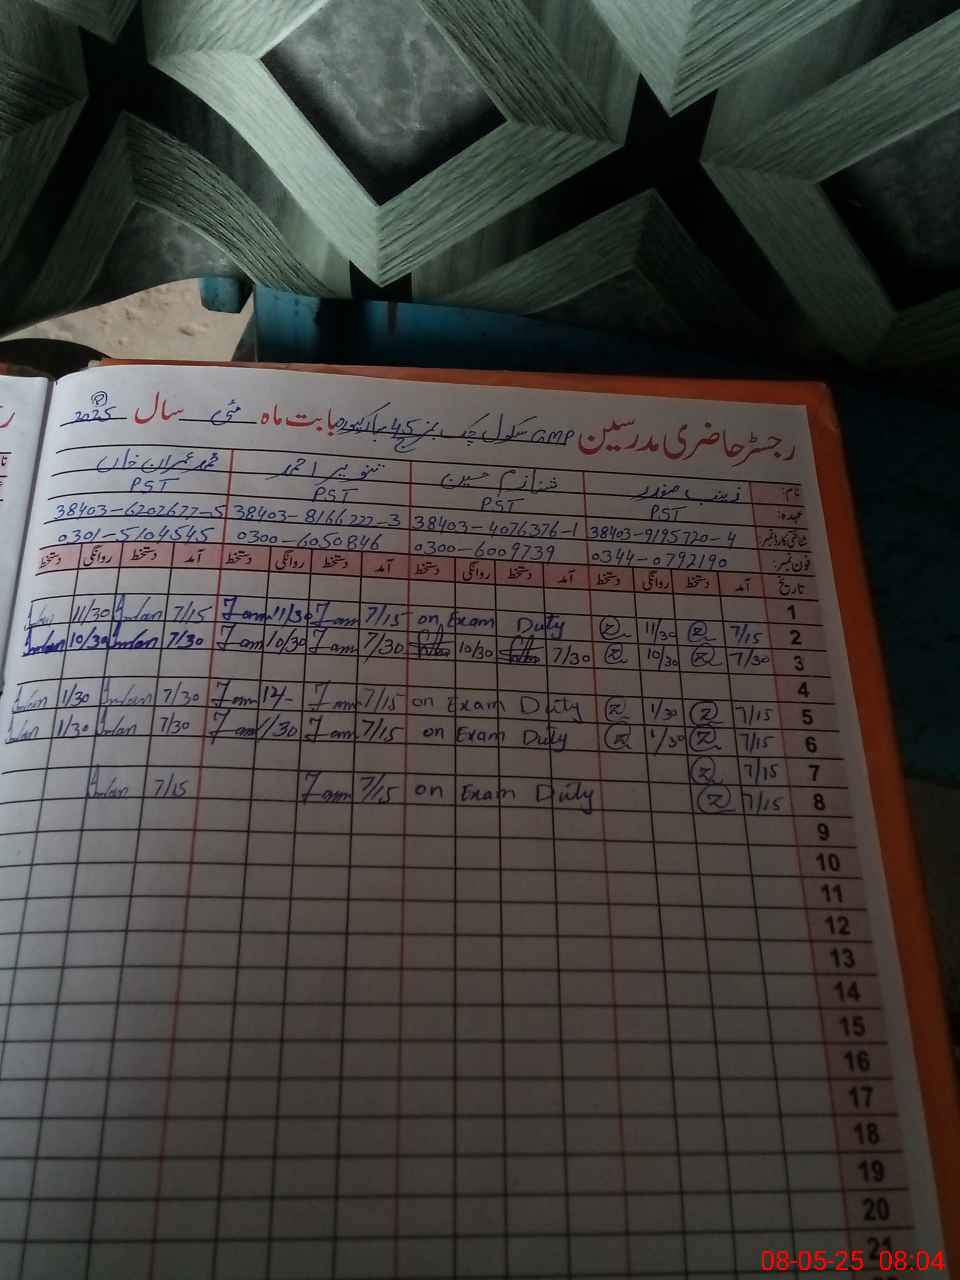 رجسٹر حاضری مدرسین GMP سکول چک نمبر 45 بابت ماہ مئی سال 2025
نام: زینب صفدر شازم حسین تنویر احمد محمد عمران خاں
عہدہ: PST PST PST PST
شناختی کارڈ نمبر: 38403-9195720-4 38403-4076376-1 38403-8166222-3 38403-6202677-5
فون نمبر: 0344-0792190 0300-6009739 0300-6050846 0301-5104545
تاریخ آمد دستخط روانگی دستخط آمد دستخط روانگی دستخط آمد دستخط روانگی دستخط آمد دستخط روانگی دستخط
1
2 7/15 11/30 on Exam Duty 7/15 11/30 7/15 Imran 11/30
3 7/30 10/30 7/30 10/30 7/30 10/30 7/30 Imran 10/30 Imran
4
5 7/15 1/30 on Exam Duty 7/15 12/- 7/30 Imran 1/30 Imran
6 7/15 1/30 on Exam Duty 7/15 1/30 7/30 Imran 1/30 Imran
7 7/15
8 7/15 on Exam Duty 7/15 7/15 Imran
9
10
11
12
13
14
15
16
17
18
19
20
21
08-05-25 08:04